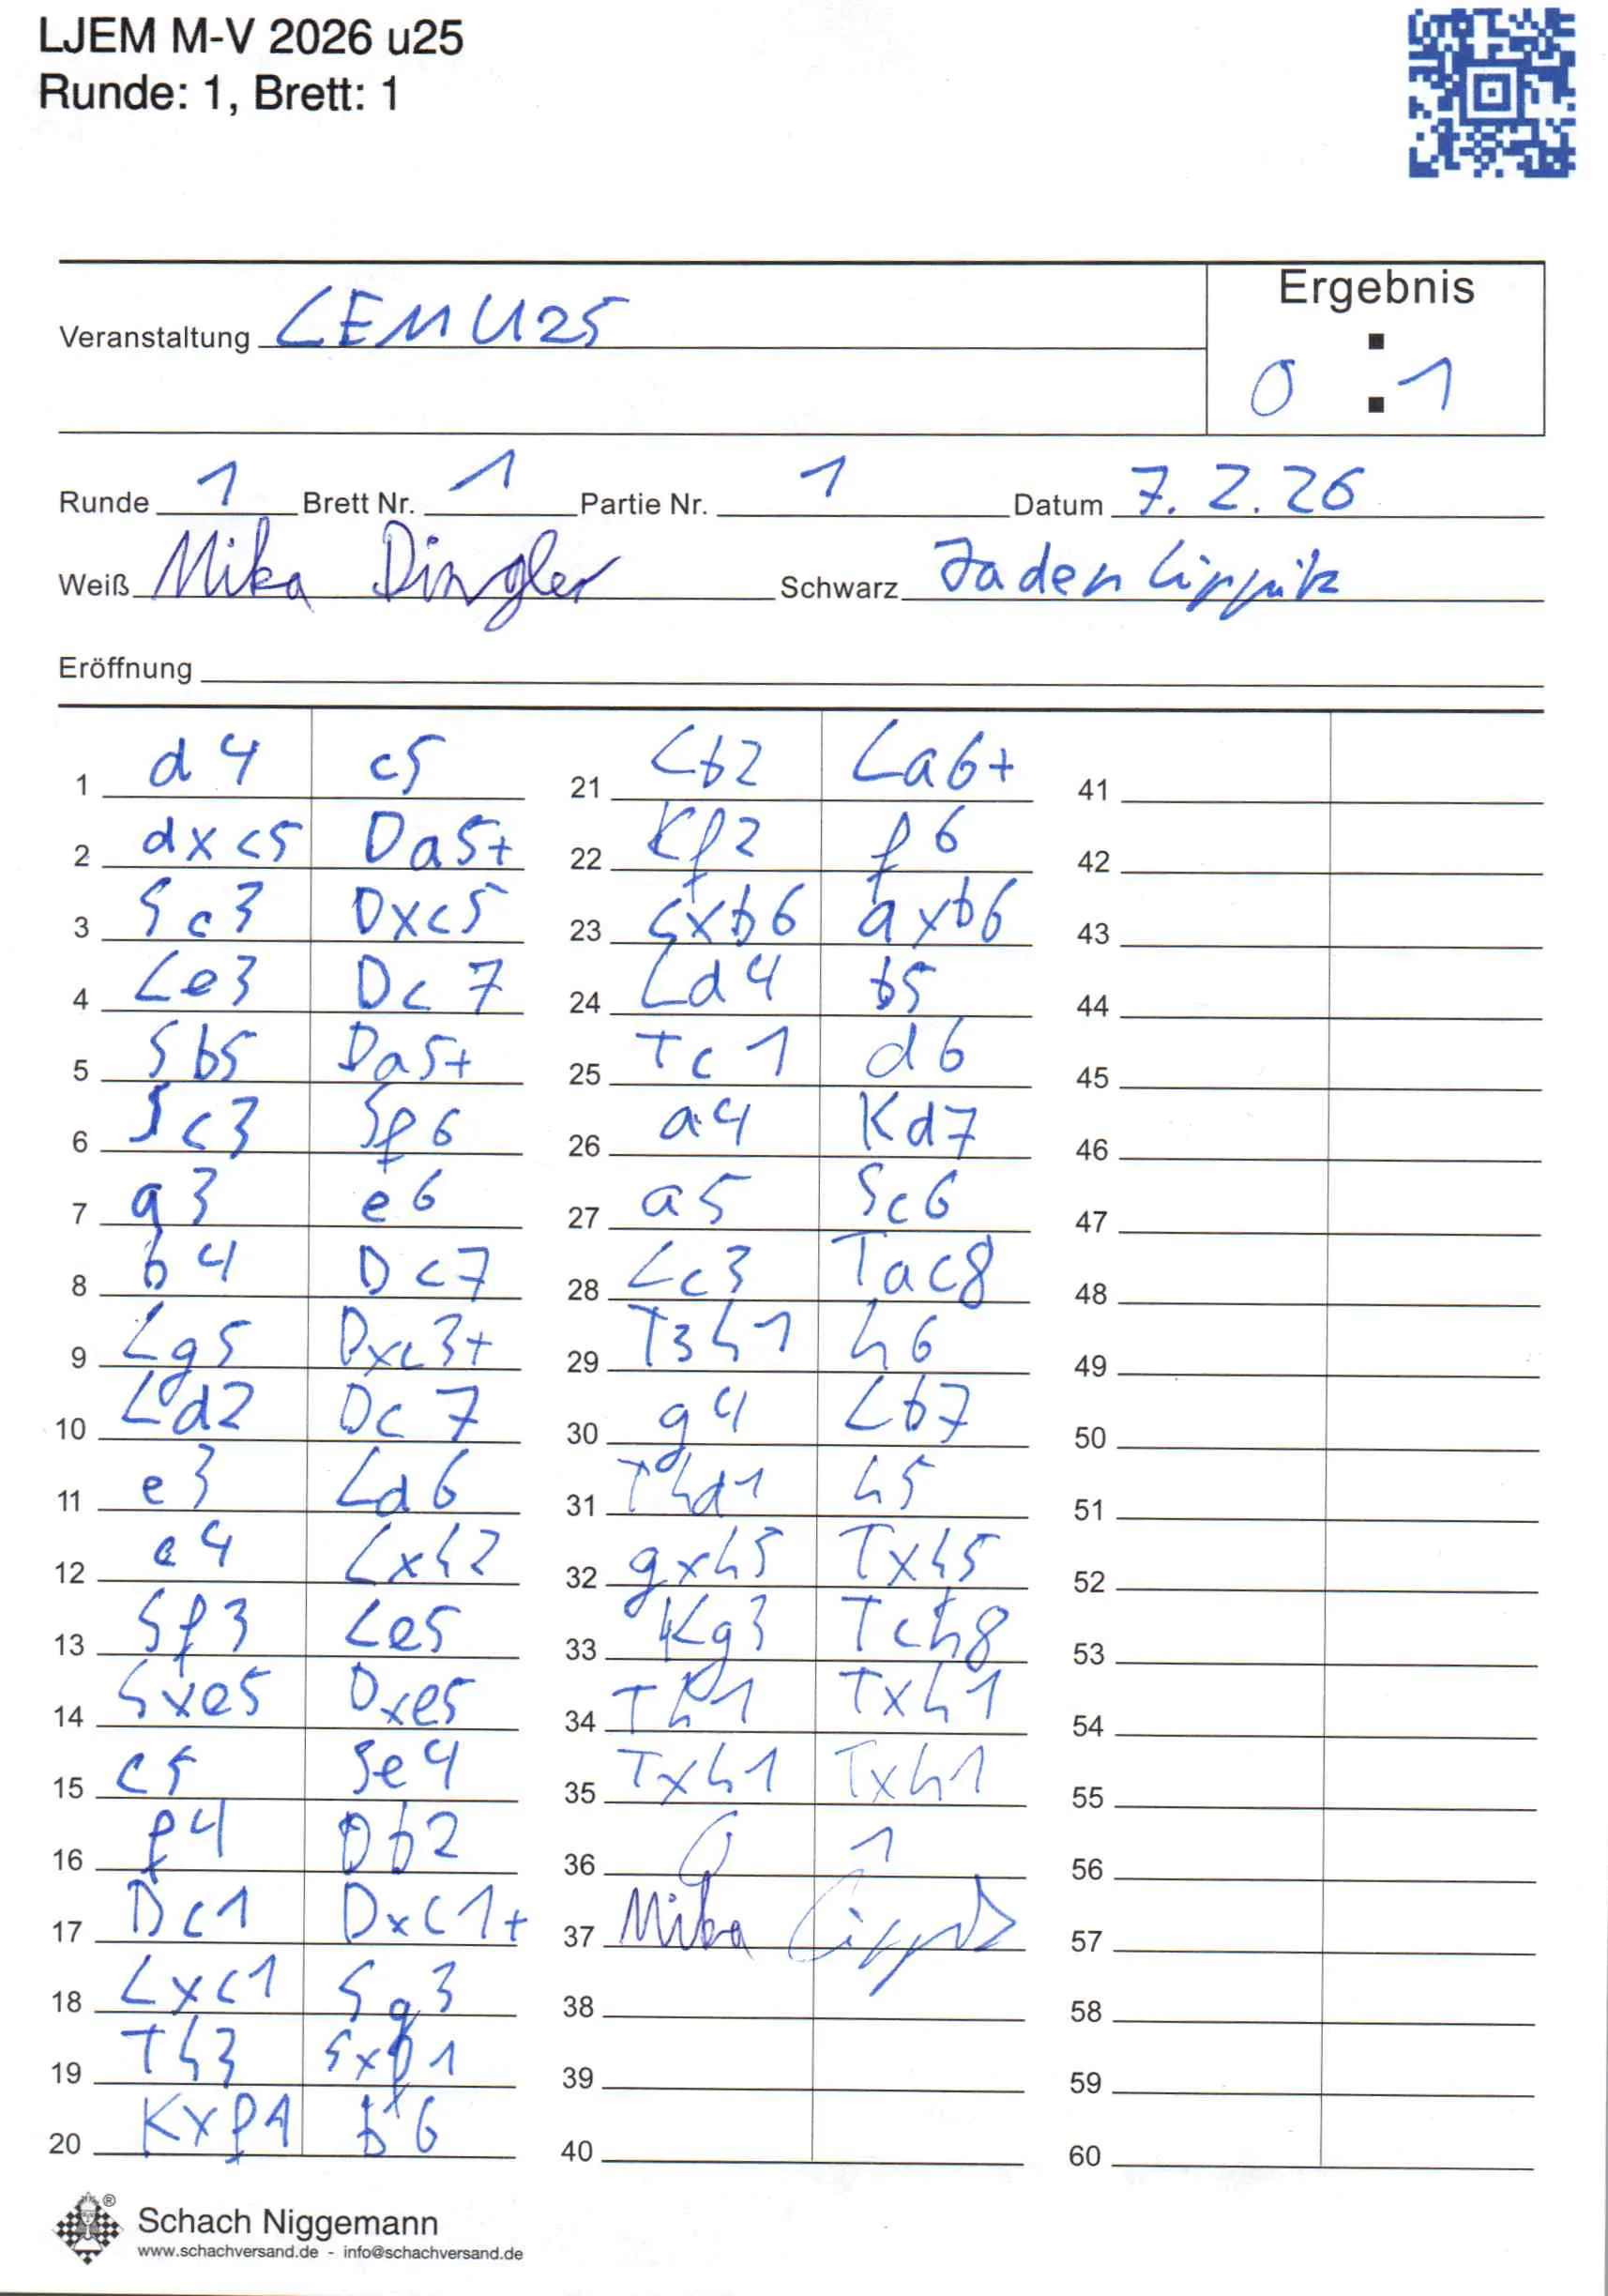 LJEM M-V 2026 u25
Runde: 1, Brett: 1
Ergebnis
Veranstaltung LEM U25
0 : 1
Runde 1 Brett Nr. 1 Partie Nr. 1 Datum 7. 2. 26
Weiß Mika Dingler Schwarz Jaden Lippitz
Eröffnung
1 d4 c5
2 dxc5 Da5+
3 Sc3 Dxc5
4 Le3 Dc7
5 Sb5 Da5+
6 Sc3 Sf6
7 a3 e6
8 b4 Dc7
9 Lg5 Dxc3+
10 Ld2 Dc7
11 e3 Ld6
12 e4 Lxh2
13 Sf3 Le5
14 Sxe5 Dxe5
15 c5 Se4
16 f4 Db2
17 Dc1 Dxc1+
18 Lxc1 Sg3
19 Th3 Sxf1
20 Kxf1 b6
21 Lb2 La6+
22 Kf2 f6
23 cxb6 axb6
24 Ld4 b5
25 Tc1 d6
26 a4 Kd7
27 a5 Sc6
28 Lc3 Tac8
29 T3h1 h6
30 g4 Lb7
31 Thd1 h5
32 gxh5 Txh5
33 Kg3 Tch8
34 Th1 Txh1
35 Txh1 Txh1
36 0 1
37 Mika
38
39
40
41
42
43
44
45
46
47
48
49
50
51
52
53
54
55
56
57
58
59
60
Schach Niggemann
www.schachversand.de - info@schachversand.de